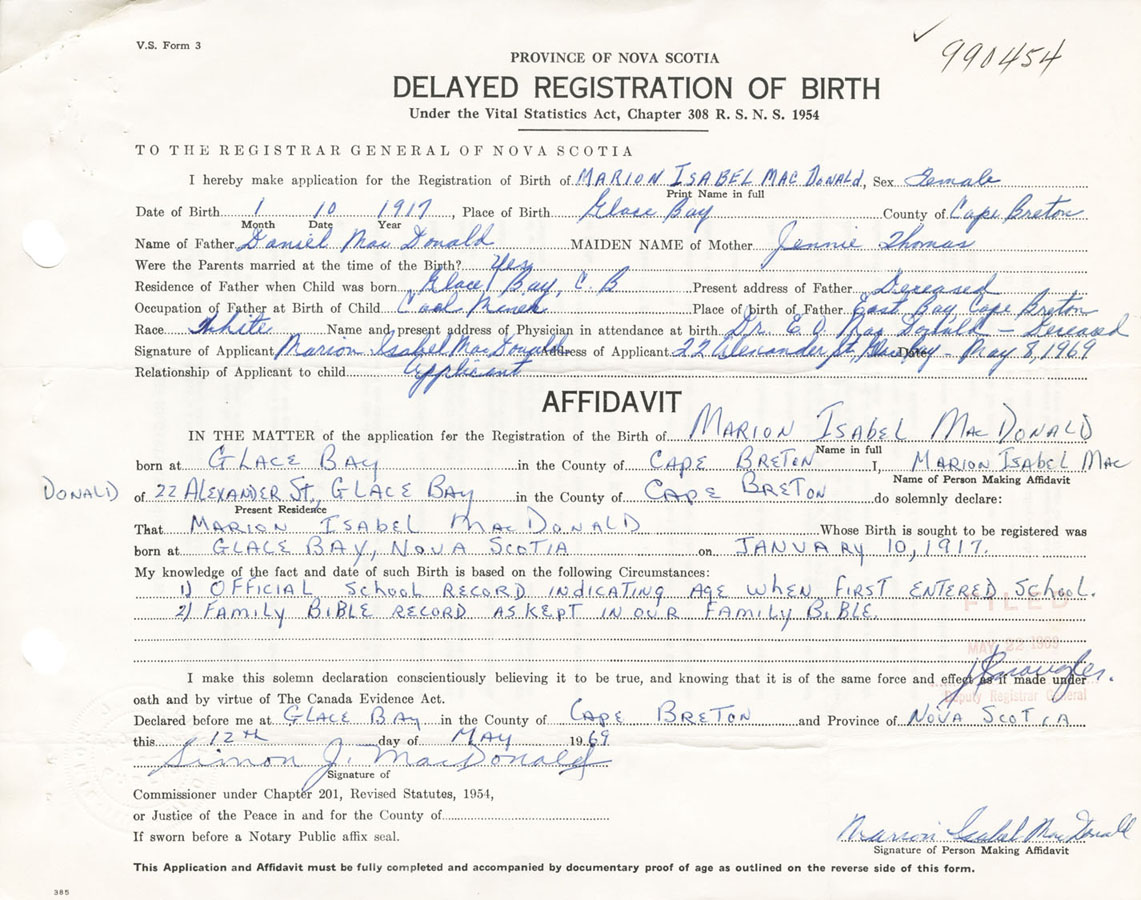 V.S. Form 3
990454
PROVINCE OF NOVA SCOTIA
DELAYED REGISTRATION OF BIRTH
Under the Vital Statistics Act, Chapter 308 R. S. N. S. 1954
TO THE REGISTRAR GENERAL OF NOVA SCOTIA
I hereby make application for the Registration of Birth of MARION ISABEL MAC DONALd, Sex Female
Print Name in full
Date of Birth 1 10 1917, Place of Birth Glace Bay County of Cape Breton
Month Date Year
Name of Father Daniel Mac Donald MAIDEN NAME of Mother Jennie Thomas
Were the Parents married at the time of the Birth? Yes
Residence of Father when Child was born Glace Bay, C. B Present address of Father Deceased
Occupation of Father at Birth of Child Coal Miner Place of birth of Father East Bay Cape Breton
Race White Name and present address of Physician in attendance at birth Dr. E. O. Mac Donald - Deceased
Signature of Applicant Marion Isabel MacDonald Address of Applicant 22 Alexander St, Glace Bay Date - May 8, 1969
Relationship of Applicant to child Applicant
AFFIDAVIT
IN THE MATTER of the application for the Registration of the Birth of MARION ISABEL MACDONALD
Name in full
born at GLACE BAY in the County of CAPE BRETON I, MARION ISABEL MAC
Name of Person Making Affidavit
DONALD of 22 ALEXANDER ST., GLACE BAY in the County of CAPE BRETON do solemnly declare:
Present Residence
That MARION ISABEL MACDONALD Whose Birth is sought to be registered was
born at GLACE BAY, NOVA SCOTIA on JANUARY 10, 1917.
My knowledge of the fact and date of such Birth is based on the following Circumstances:
1) OFFICIAL SCHOOL RECORD INDICATING AGE WHEN FIRST ENTERED SCHOOL.
2) FAMILY BIBLE RECORD AS KEPT IN OUR FAMILY BIBLE.
FILED
MAY 22 1969
I make this solemn declaration conscientiously believing it to be true, and knowing that it is of the same force and effect as if made under
Deputy Registrar General
oath and by virtue of The Canada Evidence Act.
Declared before me at GLACE BAY in the County of CAPE BRETON and Province of NOVA SCOTIA
this 12TH day of MAY 1969
Simon J. MacDonald
Signature of
Commissioner under Chapter 201, Revised Statutes, 1954,
or Justice of the Peace in and for the County of
If sworn before a Notary Public affix seal.
Marion Isabel MacDonald
Signature of Person Making Affidavit
This Application and Affidavit must be fully completed and accompanied by documentary proof of age as outlined on the reverse side of this form.
385